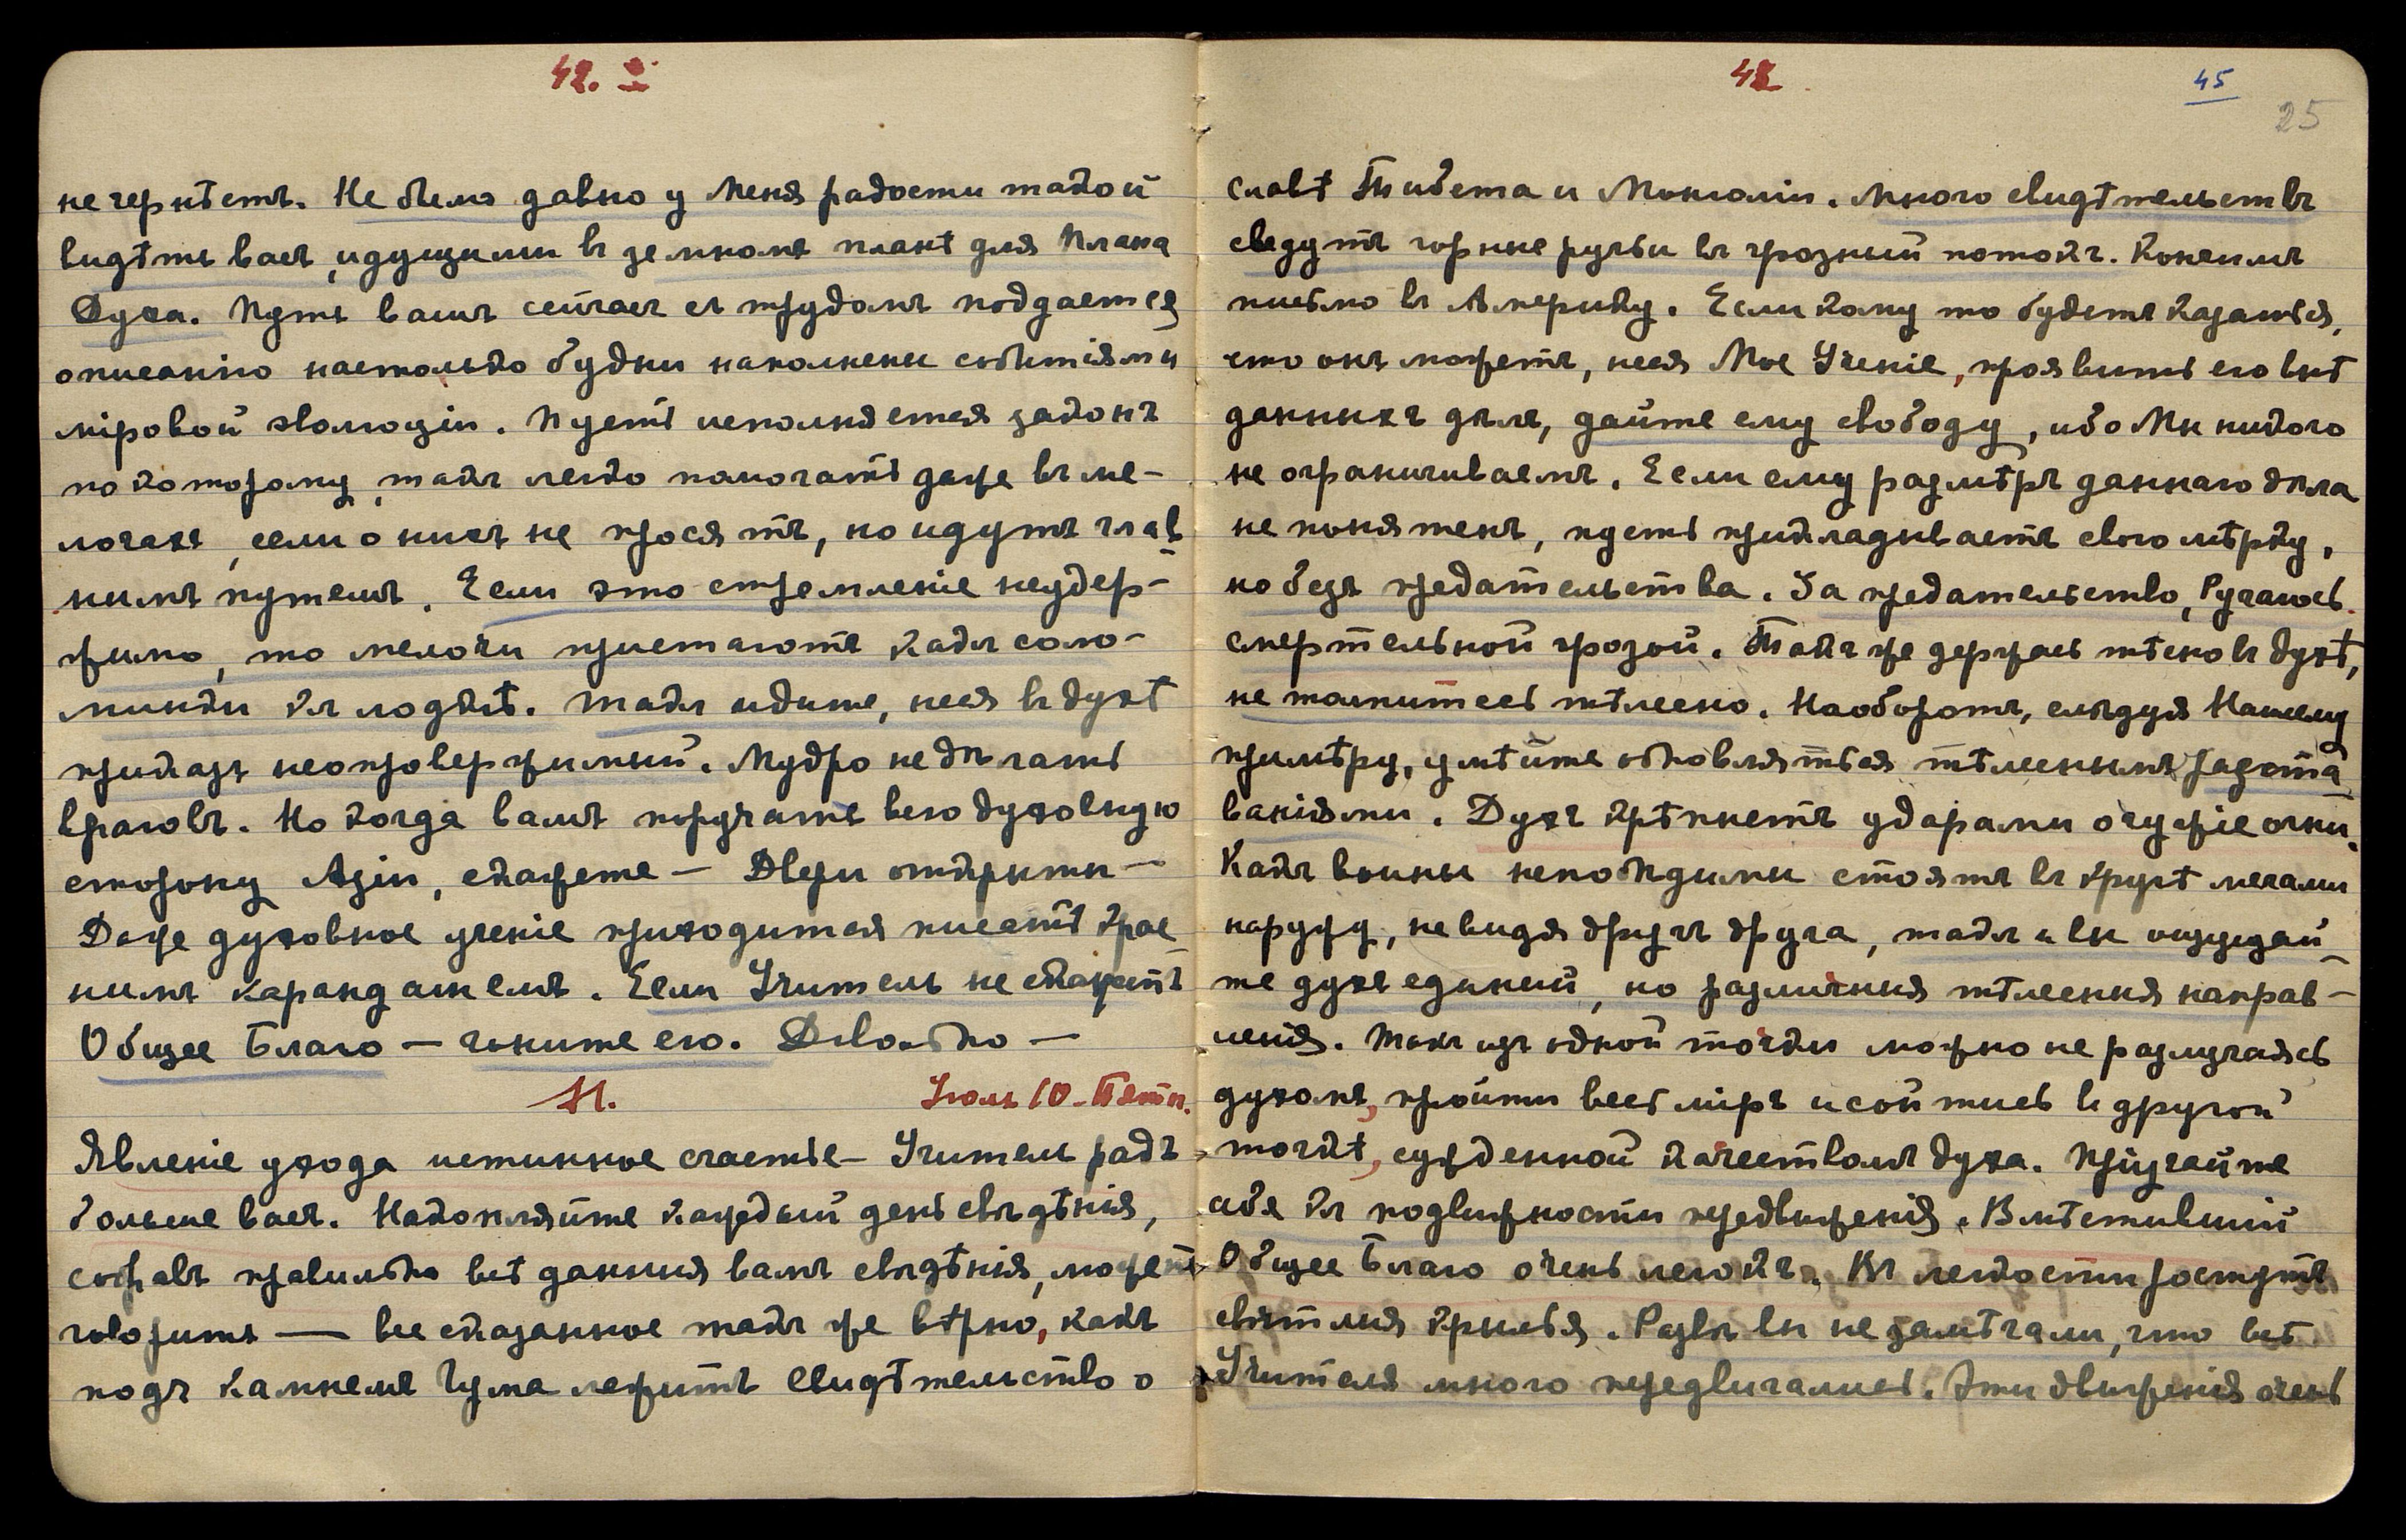 42.
не чернѣетъ. Не было давно у Меня радости такой
видѣть васъ, идущими въ земномъ планѣ для Плана
Духа. Путь вашъ сейчасъ съ трудомъ поддается
описанію настолько будни наполнены событіями
міровой эволюціи. Пусть исполняется законъ
по которому такъ легко помогать даже въ ме-
лочахъ, если о нихъ не просятъ, но идутъ глав-
нымъ путемъ. Если это стремленіе неудер-
жимо, то мелочи пристаютъ какъ соло-
минки къ лодкѣ. Такъ идите, неся въ духѣ
приказъ неопровержимый. Мудро не дѣлать
враговъ. Но когда вамъ поручатъ всю духовную
сторону Азіи, скажете — Двери открыты —
Даже духовное ученіе приходится писать крас
нымъ карандашемъ. Если Учитель не скажетъ
Общее Благо — гоните его. Довольно —
Н. Іюль 10 - Пятн.
Явленіе ухода истинное счастье — Учитель радъ
больше васъ. Накопляйте каждый день свѣдѣнія,
собравъ правильно всѣ данныя вамъ свѣдѣнія, может
говорить — все сказанное такъ же вѣрно, какъ
подъ камнемъ Чума лежитъ свидѣтельство о
42 45
25
славѣ Тибета и Монголіи. Много свидѣтельствъ
сведутъ горные ручьи въ грозный потокъ. Кончимъ
письмо въ Америку. Если кому то будетъ казаться,
что онъ можетъ, неся Мое Ученіе, проявить его внѣ
данныхъ дѣлъ, дайте ему свободу, ибо Мы никого
не ограничиваемъ. Если ему размѣръ даннаго дѣла
не понятенъ, пусть прикладываетъ свою мѣрку,
но безъ предательства. За предательство, Ручаюсь
смертельной грозой. Такъ же держась тѣсно въ духѣ,
не толпитесь тѣлесно. Наоборотъ, слѣдуя Нашему
примѣру, умѣйте обновляться тѣлеснымъ разста
ваніями. Духъ крѣпнетъ ударами оружіе огни.
Какъ воины непобѣдимы стоятъ въ кругѣ мечами
наружу, не видя другъ друга, такъ и вы ощущай
те духъ единый, но различныя тѣлесныя направ-
ленія. Такъ изъ одной точки можно не разлучаясь
духомъ, пройти весь міръ и сойтись въ другой
точкѣ, сужденной качествомъ духа. Пріучайте
себя къ подвижности передвиженія. Вмѣстившій
Общее Благо очень легокъ. Въ легкости ростутъ
свѣтлыя крылья. Развѣ вы не замѣчали, что всѣ
Учителя много передвигались. Эти движенія очень